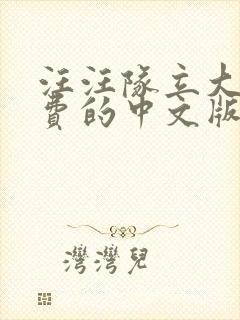 汪汪隊立大
費的中文版
灣灣兒